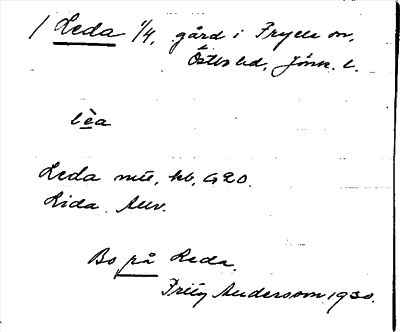 / Leda 1/4, gård i Fryele sn,
Östbo hd, Jönk. l.
lèa
Leda mtl, hb, G20.
Lida Auv.
Bo på Leda.
Fritz Andersson 1930.